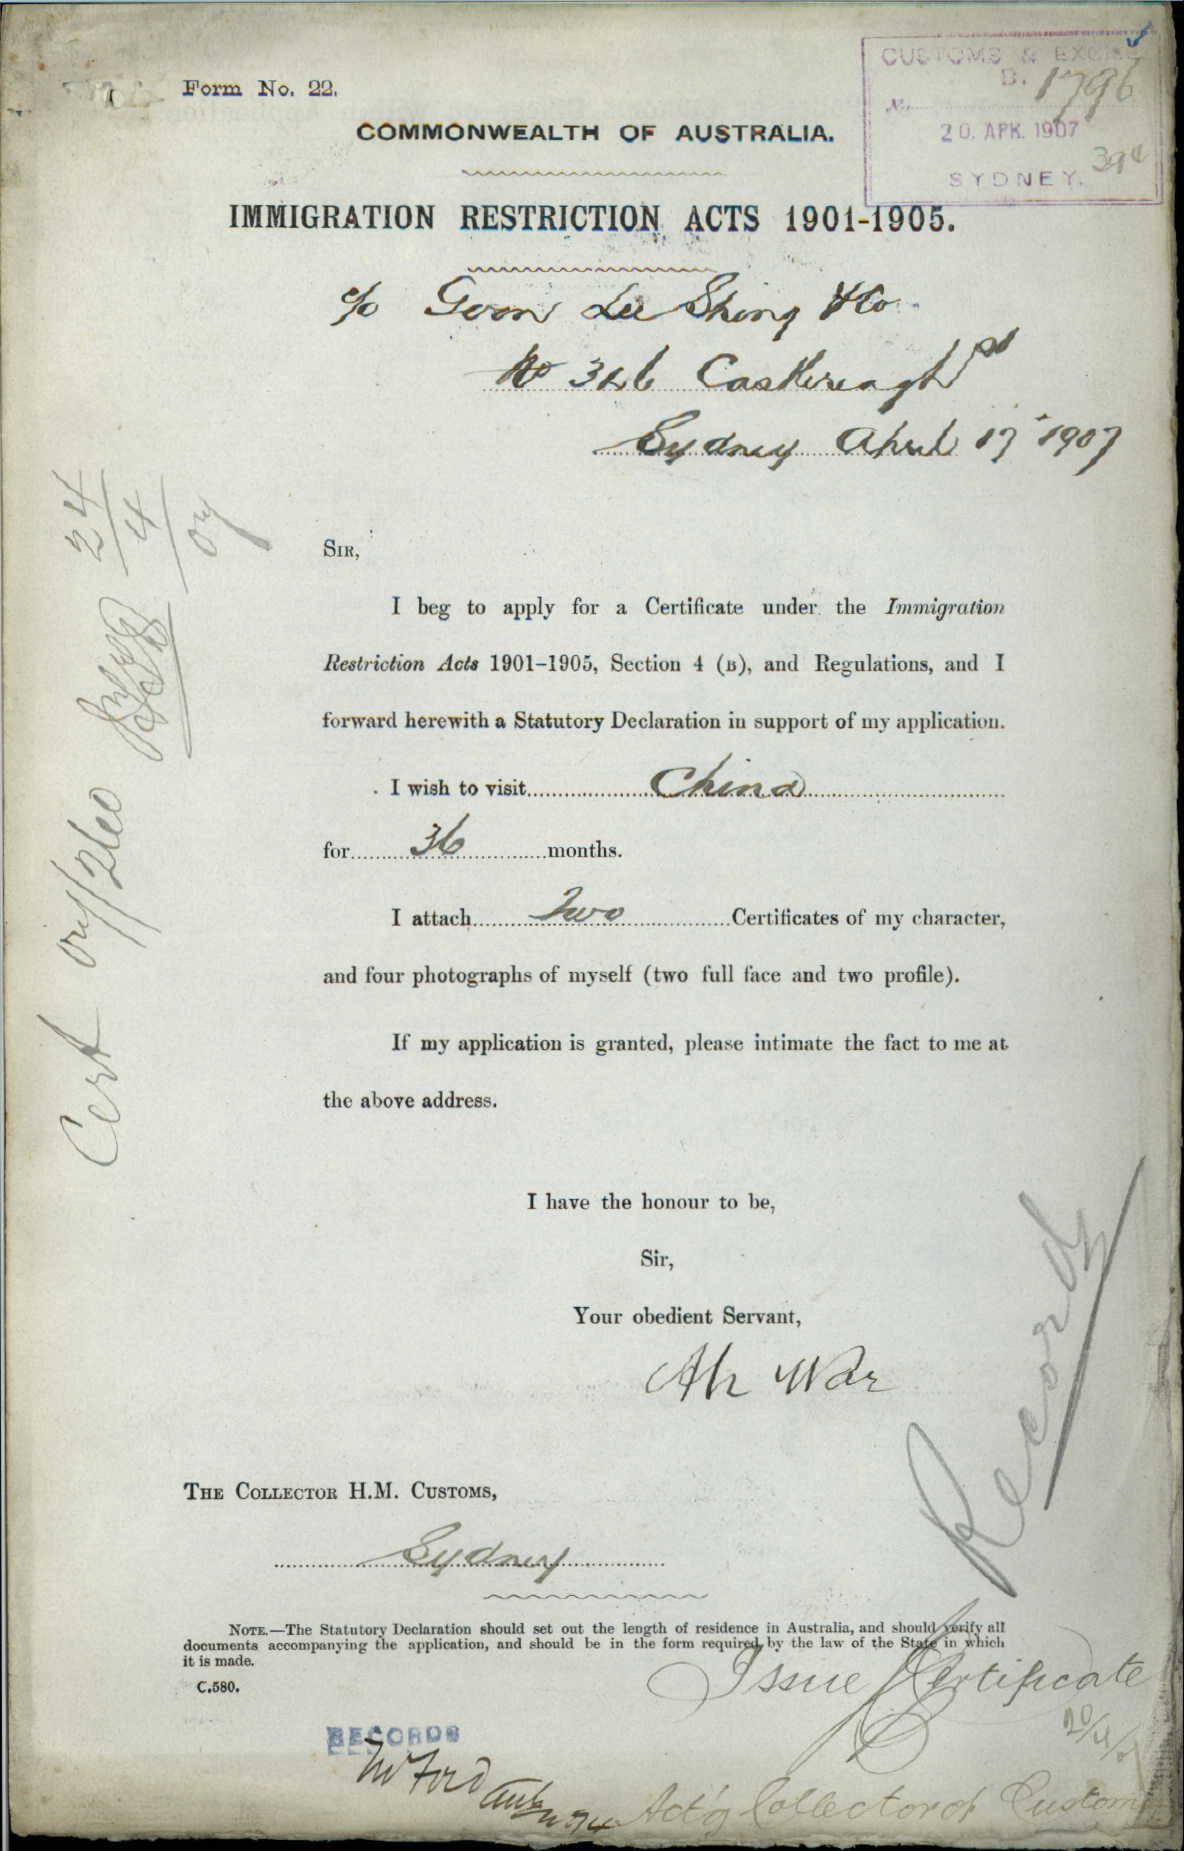 Form No. 22.
CUSTOMS & EXCISE
B. 1796
No.
20. APR. 1907
SYDNEY.
COMMONWEALTH OF AUSTRALIA.
IMMIGRATION RESTRICTION ACTS 1901-1905.
c/o Goon Lee Shing & Co
No 326 Castlereagh St
Sydney April 17 1907
24/4/07
SIR,
I beg to apply for a Certificate under the Immigration
Restriction Acts 1901-1905, Section 4 (B), and Regulations, and I
forward herewith a Statutory Declaration in support of my application.
I wish to visit China
for 36 months.
I attach Two Certificates of my character,
and four photographs of myself (two full face and two profile).
If my application is granted, please intimate the fact to me at
the above address.
Cert 07/2600
I have the honour to be,
Sir,
Your obedient Servant,
Ah War
Records
THE COLLECTOR H.M. CUSTOMS,
Sydney
NOTE.—The Statutory Declaration should set out the length of residence in Australia, and should verify all
documents accompanying the application, and should be in the form required by the law of the State in which
it is made.
C.580.
Issue Certificate
20/4/07
RECORDS
Act'g Collector of Customs